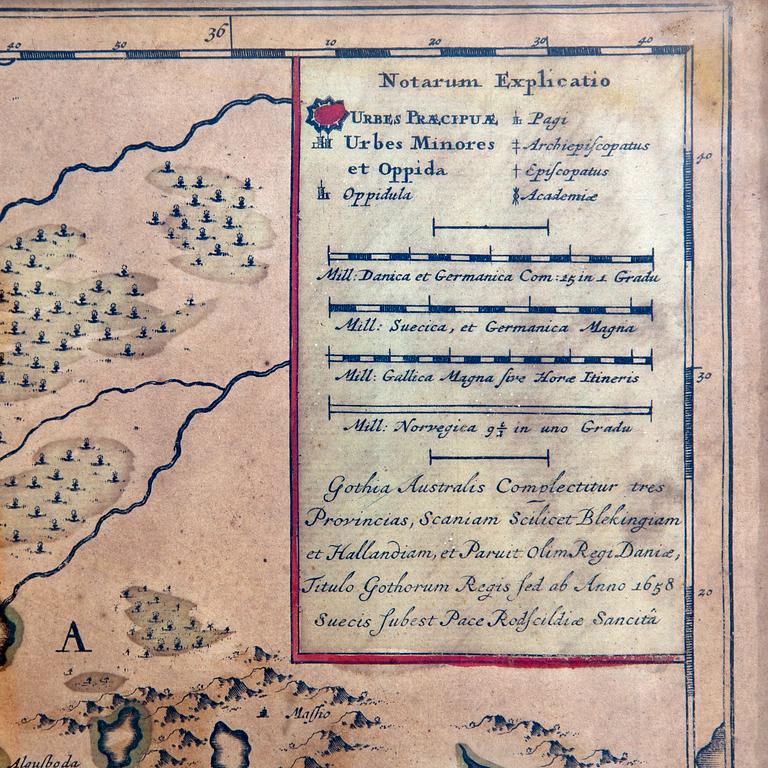 40 50 36 10 20 30 40
Notarum Explicatio
Urbes Præcipuæ
Urbes Minores
et Oppida
Oppidula
Pagi
Archiepiſcopatus
Epiſcopatus
Academiæ
Mill: Danica et Germanica Com: 15 in 1 Gradu
Mill: Suecica, et Germanica Magna
Mill: Gallica Magna ſive Horæ Itineris
Mill: Norvegica in uno Gradu
Gothia Australis Complectitur tres
Provincias, Scaniam Scilicet Blekingiam
et Hallandiam, et Paruit Olim Regi Daniæ,
Titulo Gothorum Regis ſed ab Anno 1658
Suecis ſubest Pace Rodſcildiæ Sancitâ
40
30
20
A
Maſho
Alguſboda